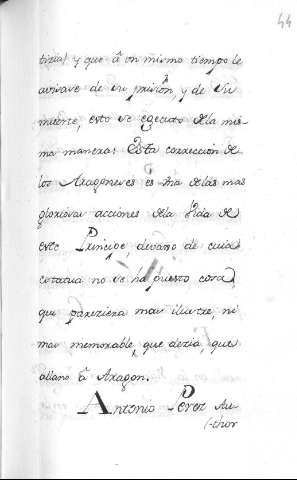 44
ticia) y que â un mismo tiempo le
avisase de su prision, y de su
muerte, esto se egecutò dela mis
ma manera: Esta correccion de
los Aragoneses es una delas mas
gloriosas acciones dela Vida de
este Principe, devaxo de cuia
estatua no se ha puesto cosa,
que pareziera mas ilustre, ni
mas memorable, que dezia, que
allano â Aragon.
Antonio Perez Au-
(-thor